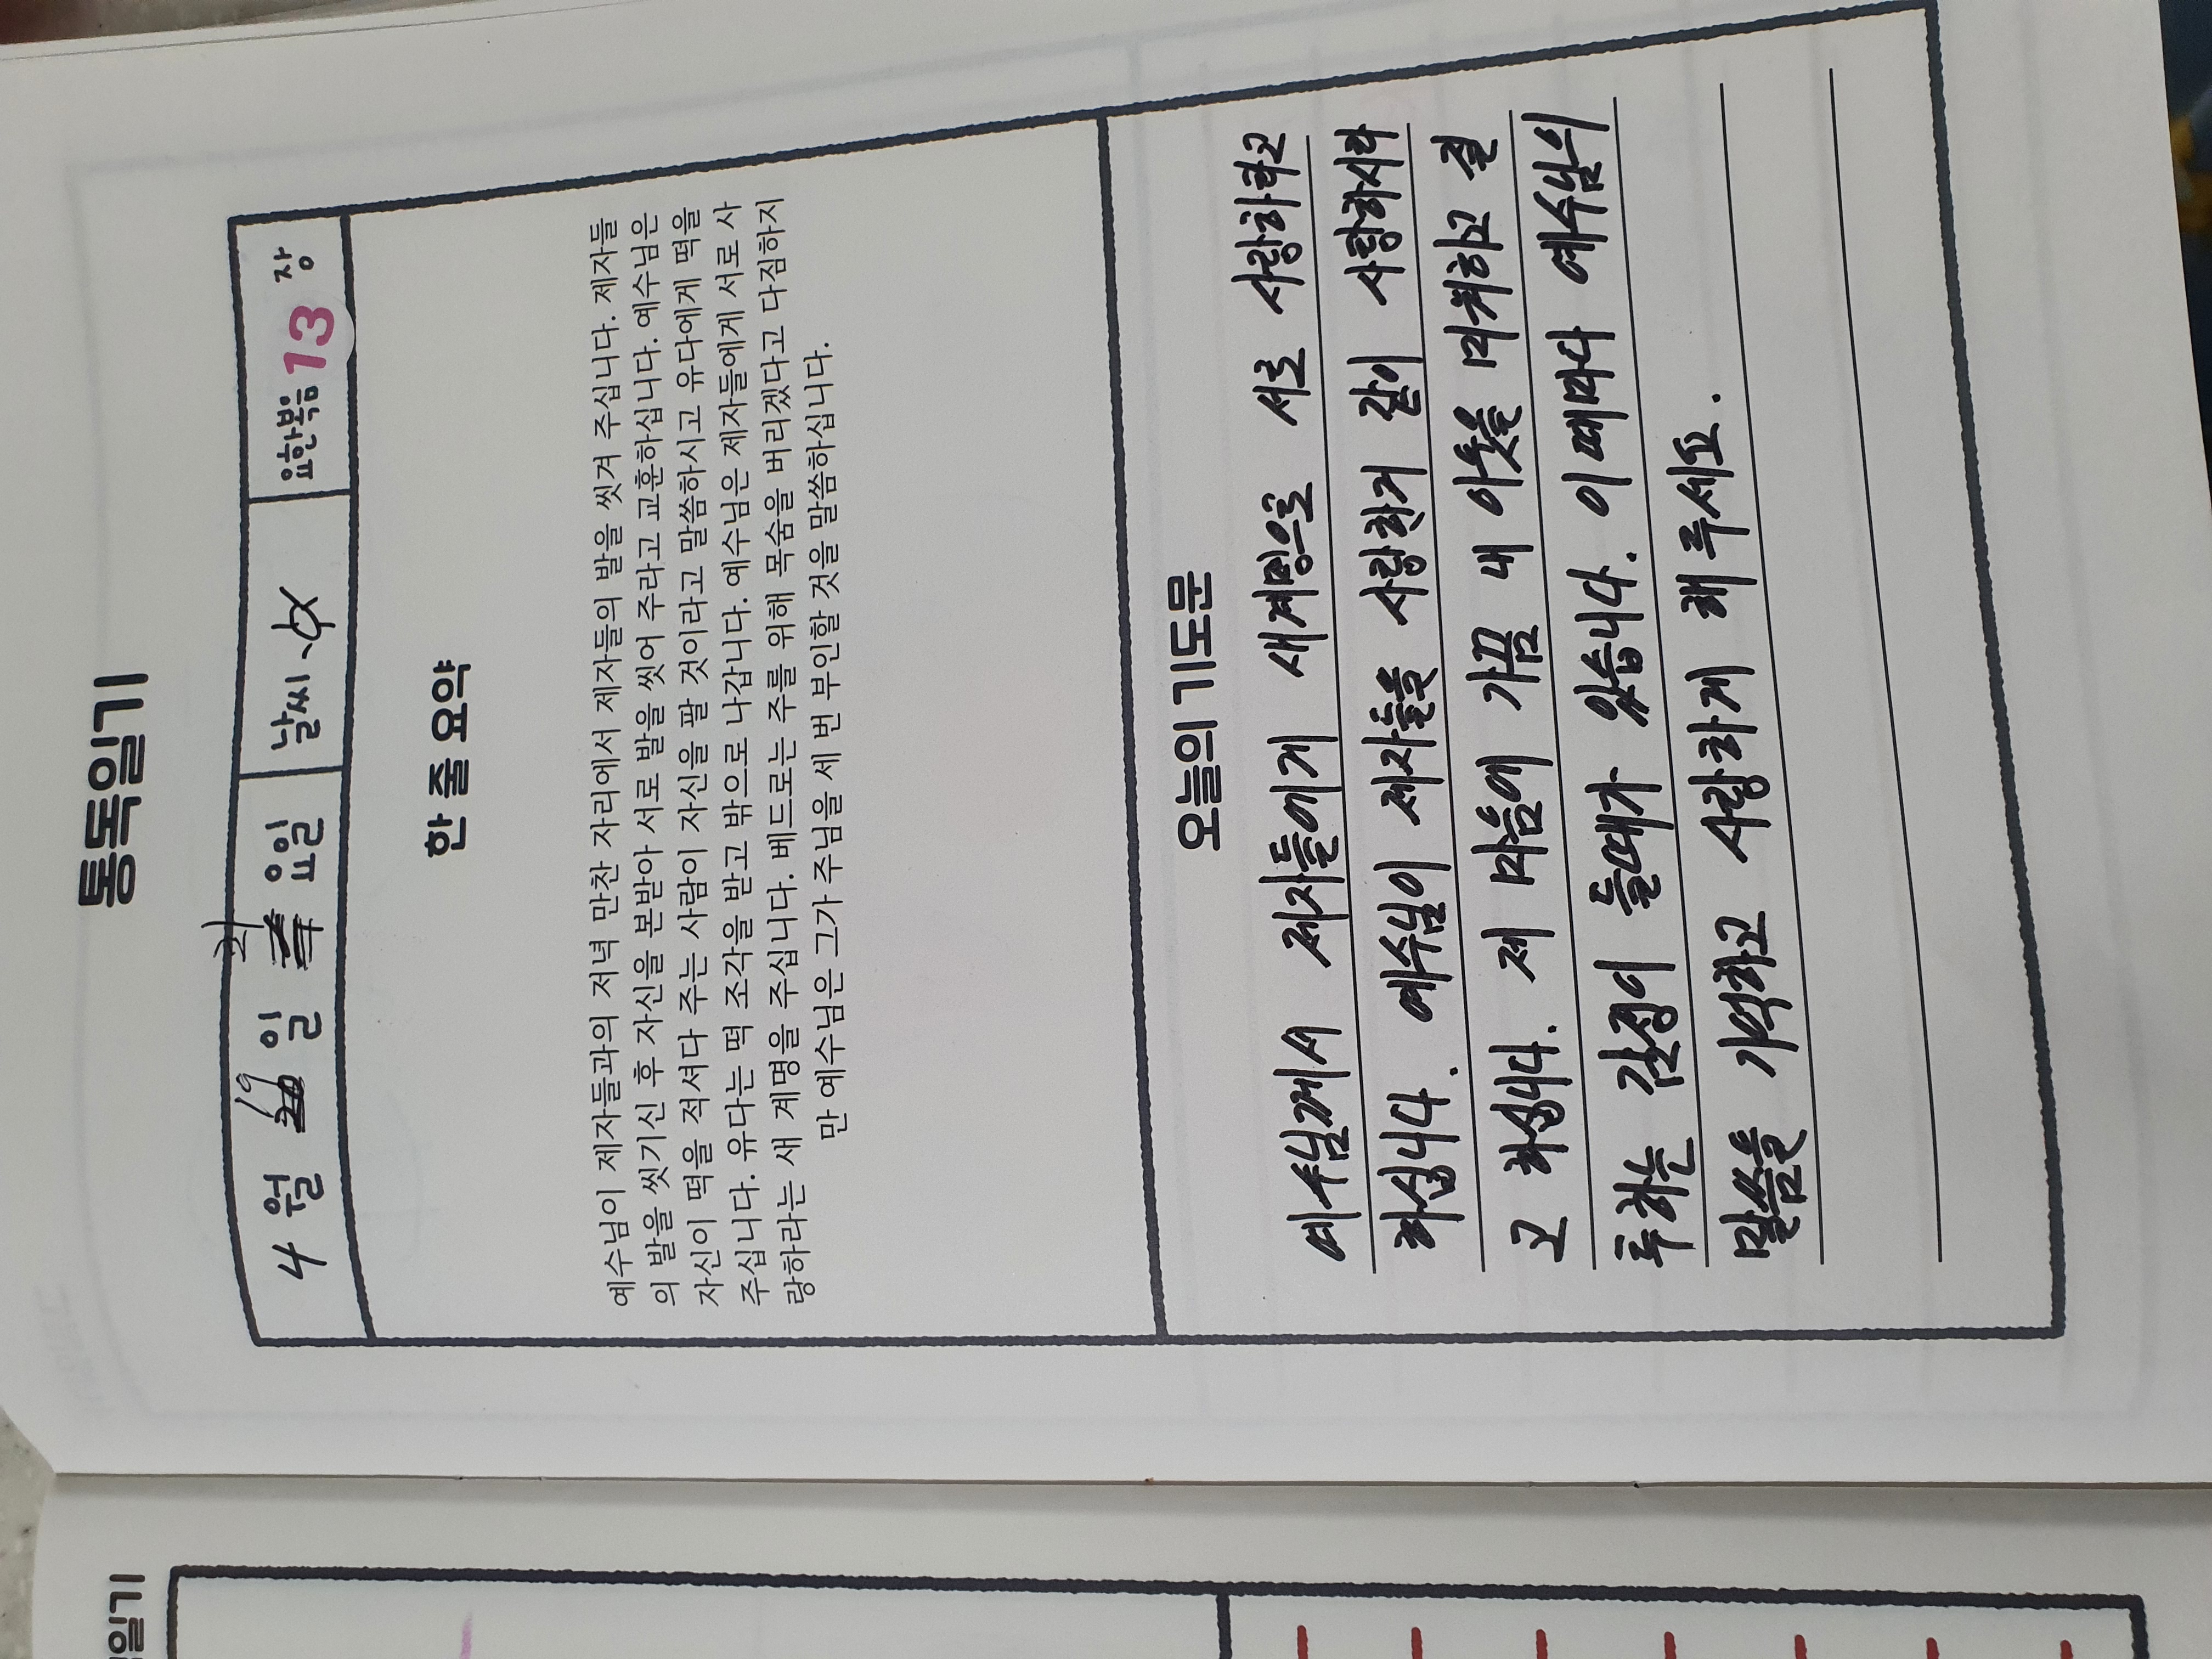 통독일기
4월 19일 화요일 날씨 요한복음 13장
한 줄 요약
예수님이 제자들과의 저녁 만찬 자리에서 제자들의 발을 씻겨 주십니다. 제자들
의 발을 씻기신 후 자신을 본받아 서로 발을 씻어 주라고 교훈하십니다. 예수님은
자신이 떡을 적셔다 주는 사람이 자신을 팔 것이라고 말씀하시고 유다에게 떡을
주십니다. 유다는 떡 조각을 받고 밖으로 나갑니다. 예수님은 제자들에게 서로 사
랑하라는 새 계명을 주십니다. 베드로는 주를 위해 목숨을 버리겠다고 다짐하지
만 예수님은 그가 주님을 세 번 부인할 것을 말씀하십니다.
오늘의 기도문
예수님께서 제자들에게 새계명으로 서로 사랑하라고
하십니다. 예수님이 제자들을 사랑하신거 같이 사랑하시라
고 하십니다. 제 마음에 가끔 내 이웃을 미워하고 질
투하는 감정이 들때가 있습니다. 이 때마다 예수님의
말씀을 기억하고 사랑하게 해 주세요.
일기